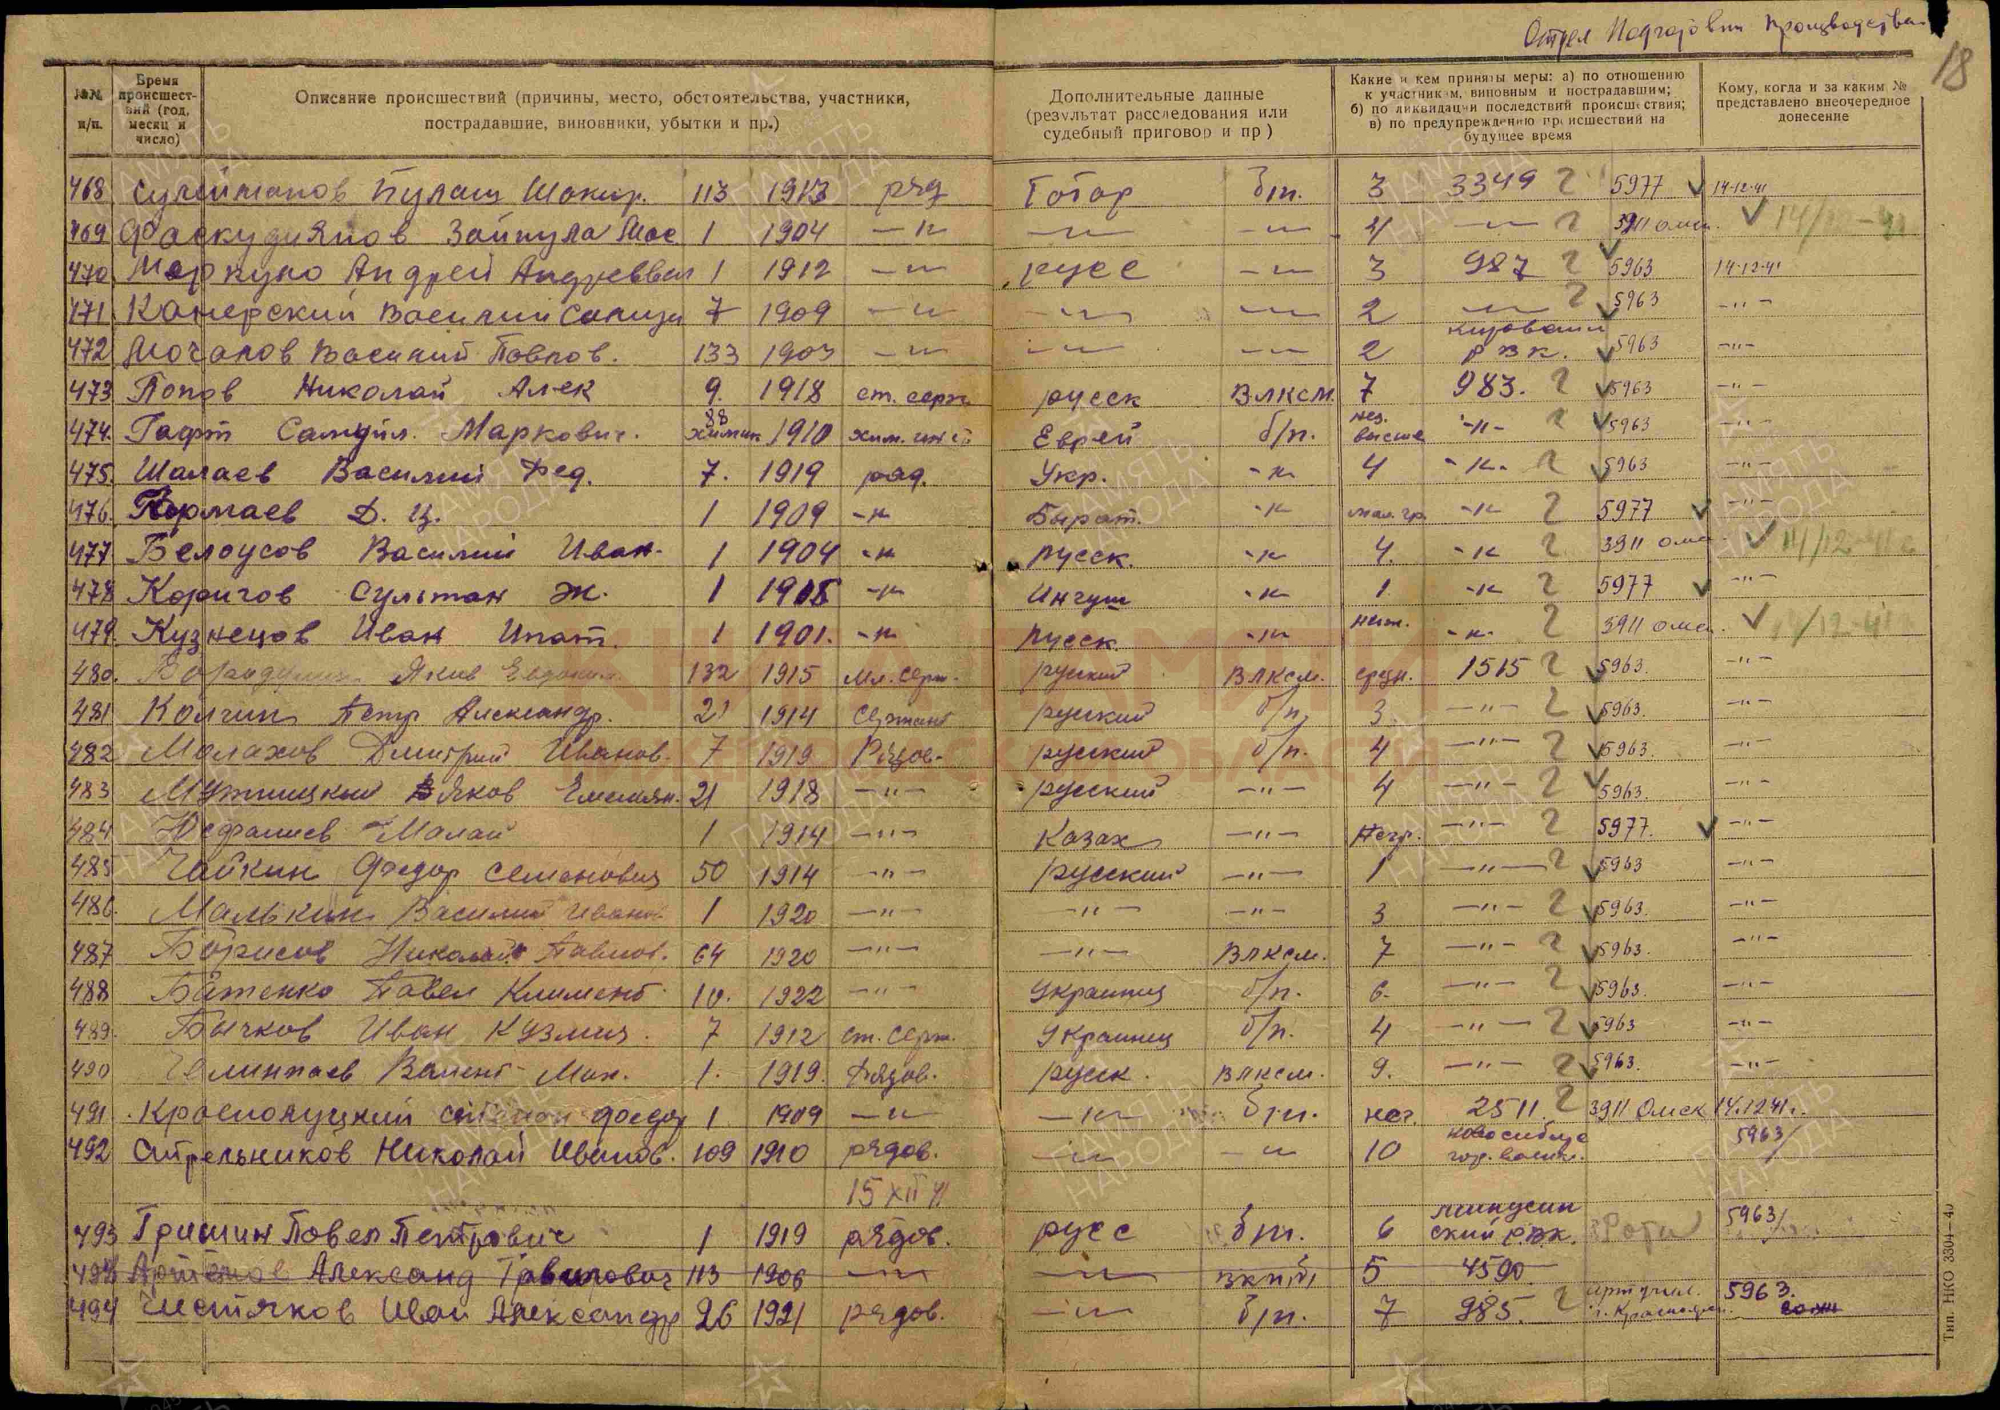 Отдел Подготовки Производства
18
№№ п/п.
Время происшествий (год, месяц и число)
Описание происшествий (причины, место, обстоятельства, участники, пострадавшие, виновники, убытки и пр.)
Дополнительные данные (результат расследования или судебный приговор и пр)
Какие и кем приняты меры: а) по отношению к участникам, виновным и пострадавшим; б) по ликвидации последствий происшествия; в) по предупреждению происшествий на будущее время
Кому, когда и за каким № представлено внеочередное донесение
468 Сулейманов Булат Шакир. 113 1913 ряд Татар б/п. 3 3349 5977 14-12-41
469 Зайнула 1 1904 —"— —"— —"— 4 —"— 3911 омск. 14/12-41
470 Андрей Андреевич 1 1912 —"— русс —"— 3 987 5963 14-12-41
471 Василий 7 1909 —"— —"— —"— 2 —"— 5963 —"—
472 Мочалов Василий Павлов. 133 1903 —"— —"— —"— 2 РВК. 5963 —"—
473 Попов Николай Алек 9. 1918 ст. серж русск ВЛКСМ 7 983. 5963 —"—
474. Гафт Самуил. Маркович. 88 химик 1910 Еврей б/п. высше -"- 5963 —"—
475. Шалаев Василий Фед. 7. 1919 ряд. Укр. -"- 4 -"- 5963 —"—
476. Д. Ц. 1 1909 -"- Бурят. -"- мал.гр. -"- 5977 —"—
477. Белоусов Василий Иван. 1 1904 -"- русск. -"- 4. -"- 3911 омск 14/12-41
478 Каригов Султан Ж. 1 1915 -"- Ингуш -"- 1 -"- 5977 —"—
479. Кузнецов Иван Ипат. 1 1901. -"- русск. -"- -"- 3911 омск. 14/12-41
480. Яков Евдоким. 132 1915 мл. серж. русский ВЛКСМ. средн. 1515 5963. —"—
481 Колчин Петр Александр. 21 1914 сержант русский б/п. 3 —"— 5963. —"—
482 Малахов Дмитрий Иванов. 7 1919 Рядов. русский б/п. 4 —"— 5963. —"—
483 Яков Емельян. 21 1918 —"— русский —"— 4 —"— 5963. —"—
484 Малай 1 1914 —"— Казах —"— негр. —"— 5977. —"—
485 Чайкин Федор Семенович 50 1914 —"— русский —"— 1 —"— 5963 —"—
486. Малькин Василий Иванов. 1 1920 —"— —"— —"— 3 —"— 5963. —"—
487 Борисов Николай Павлов. 64 1920 —"— —"— ВЛКСМ. 7 —"— 5963. —"—
488 Батенко Павел Климент. 10. 1922 —"— Украинец б/п. 6. —"— 5963. —"—
489. Бычков Иван Кузмич. 7 1912 ст. серж. Украинец б/п. 4 —"— 5963 —"—
490 Валент 1. 1919. Рядов. русск. ВЛКСМ. 9. —"— 5963. —"—
491 Краснолуцкий Федор 1 1909 —"— —"— б/п. нег. 2511. 3911 Омск 14.12.41.
492 Стрельников Николай Иванов. 109 1910 рядов. —"— —"— 10 новосибир гор. воен. 5963/
15 XII 41
493 Гришин Павел Петрович 1 1919 рядов. русс б/п. 6 минусинский РВК. Рота 5963/
494 Артёмов Александ Гаврилович 113 1906 —"— —"— ВКП(б) 5 4590
494 Чистяков Иван Александр 26 1921 рядов. —"— б/п. 7 985. арт учил. г. Красноярск. 5963.
Тип. НКО 3304—40